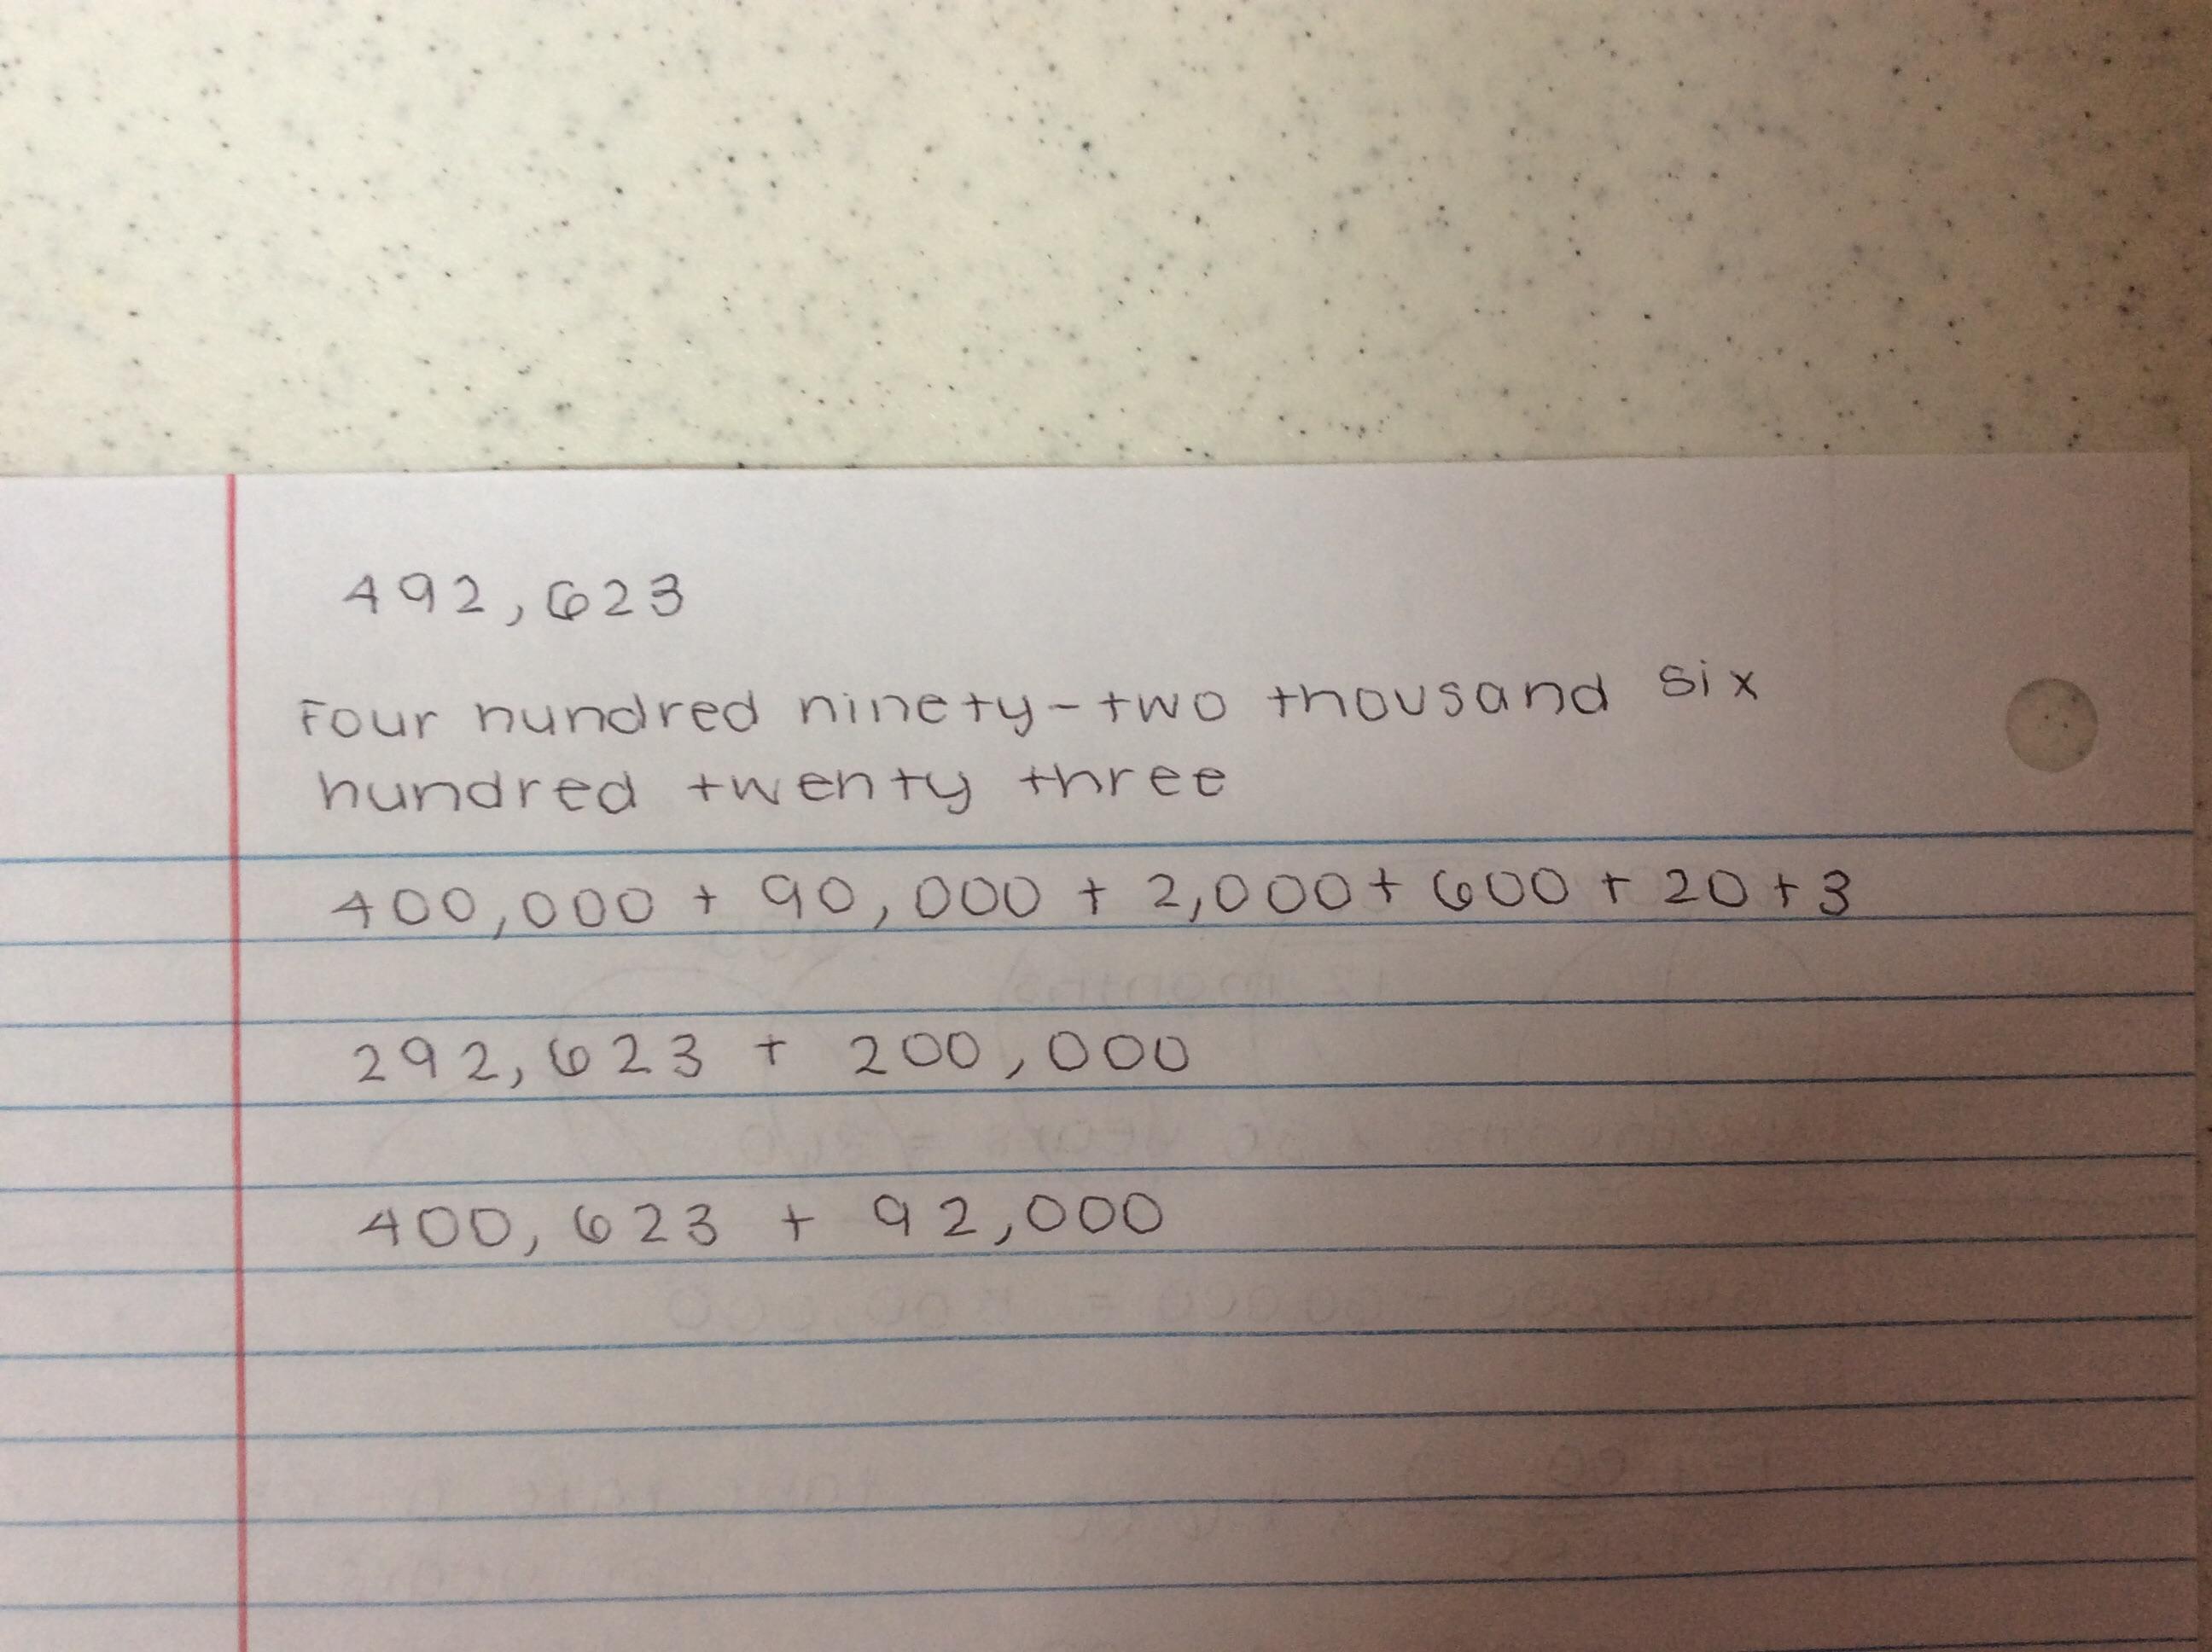 492,623
Four hundred ninety-two thousand six
hundred twenty three
400,000 + 90,000 + 2,000 + 600 + 20 + 3
292,623 + 200,000
400,623 + 92,000